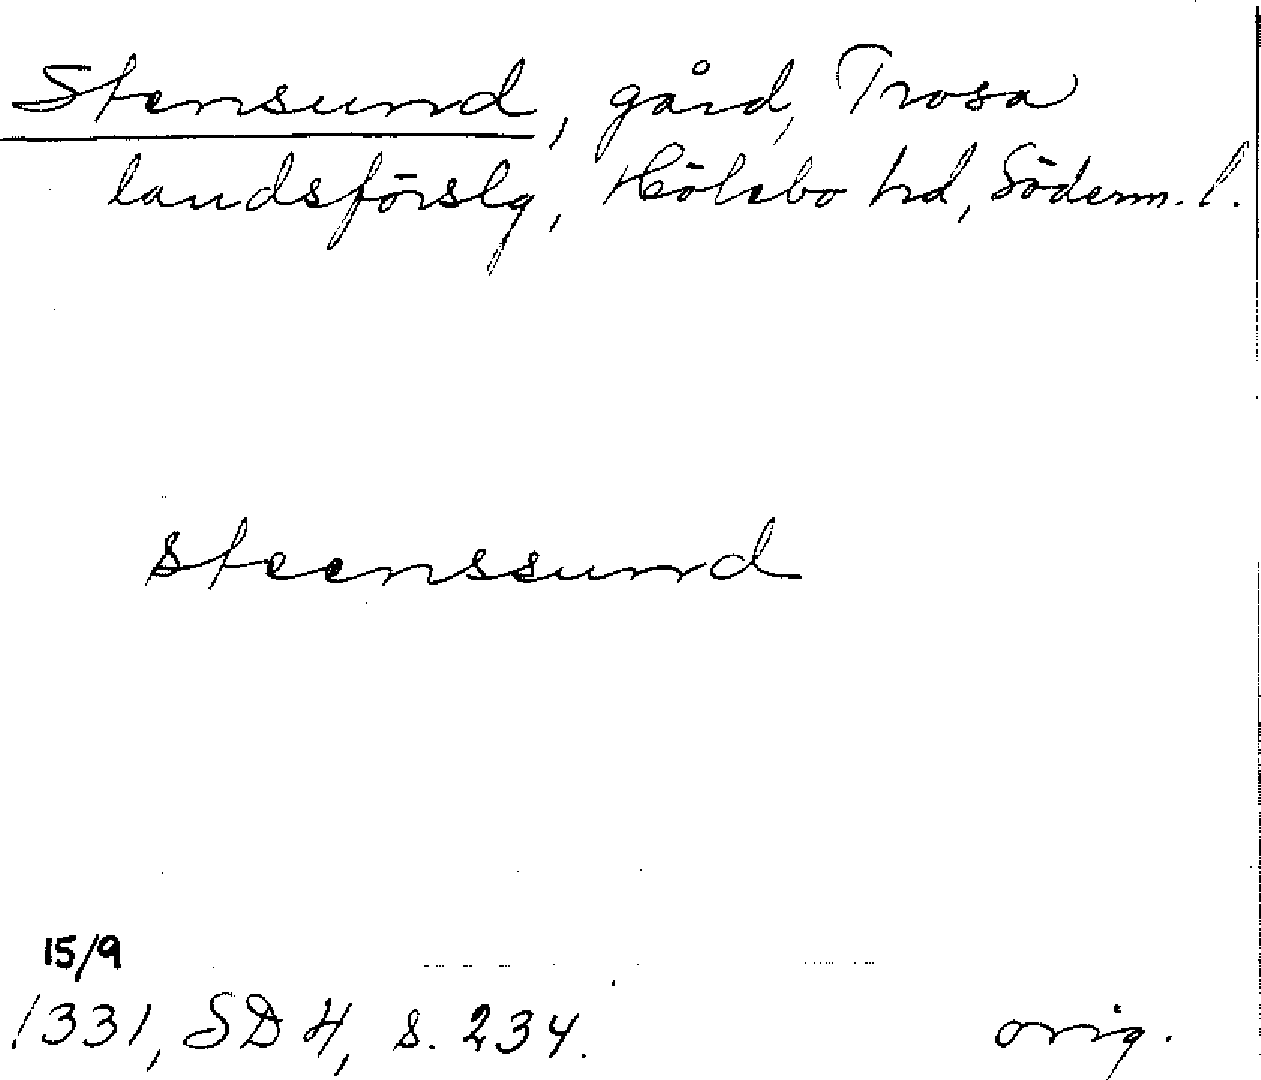 Stensund, gård, Trosa
landsförslg, Hölebo hd, Söderm. l.
steenssund
15/9
1331, SD 4, s. 234. orig.